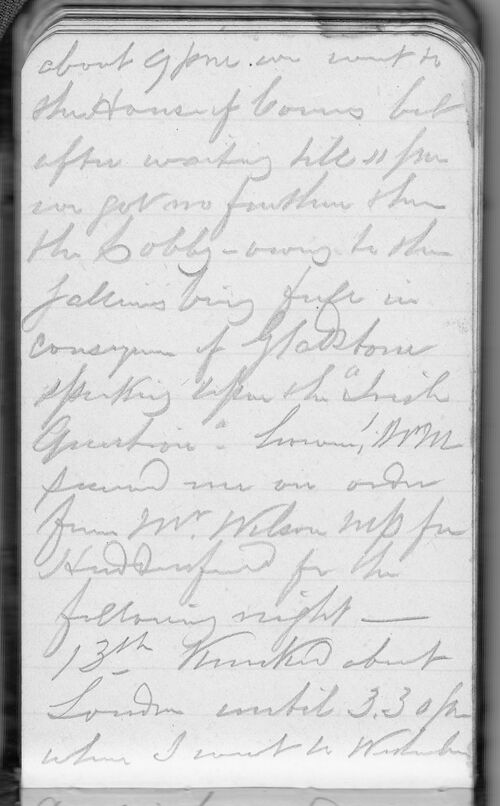 about 9 pm. we went to
the House of Comns but
after waiting till 11 pm
we got no further than
the Lobby - owing to the
Galleries being full in
consequence of Gladstone
speaking upon the "Irish
Question".
secured me an order
from Mr. Wilson M.P. for
Huddersfield for the
following night —
13th Knocked about
London until 3.30 pm
when I went to